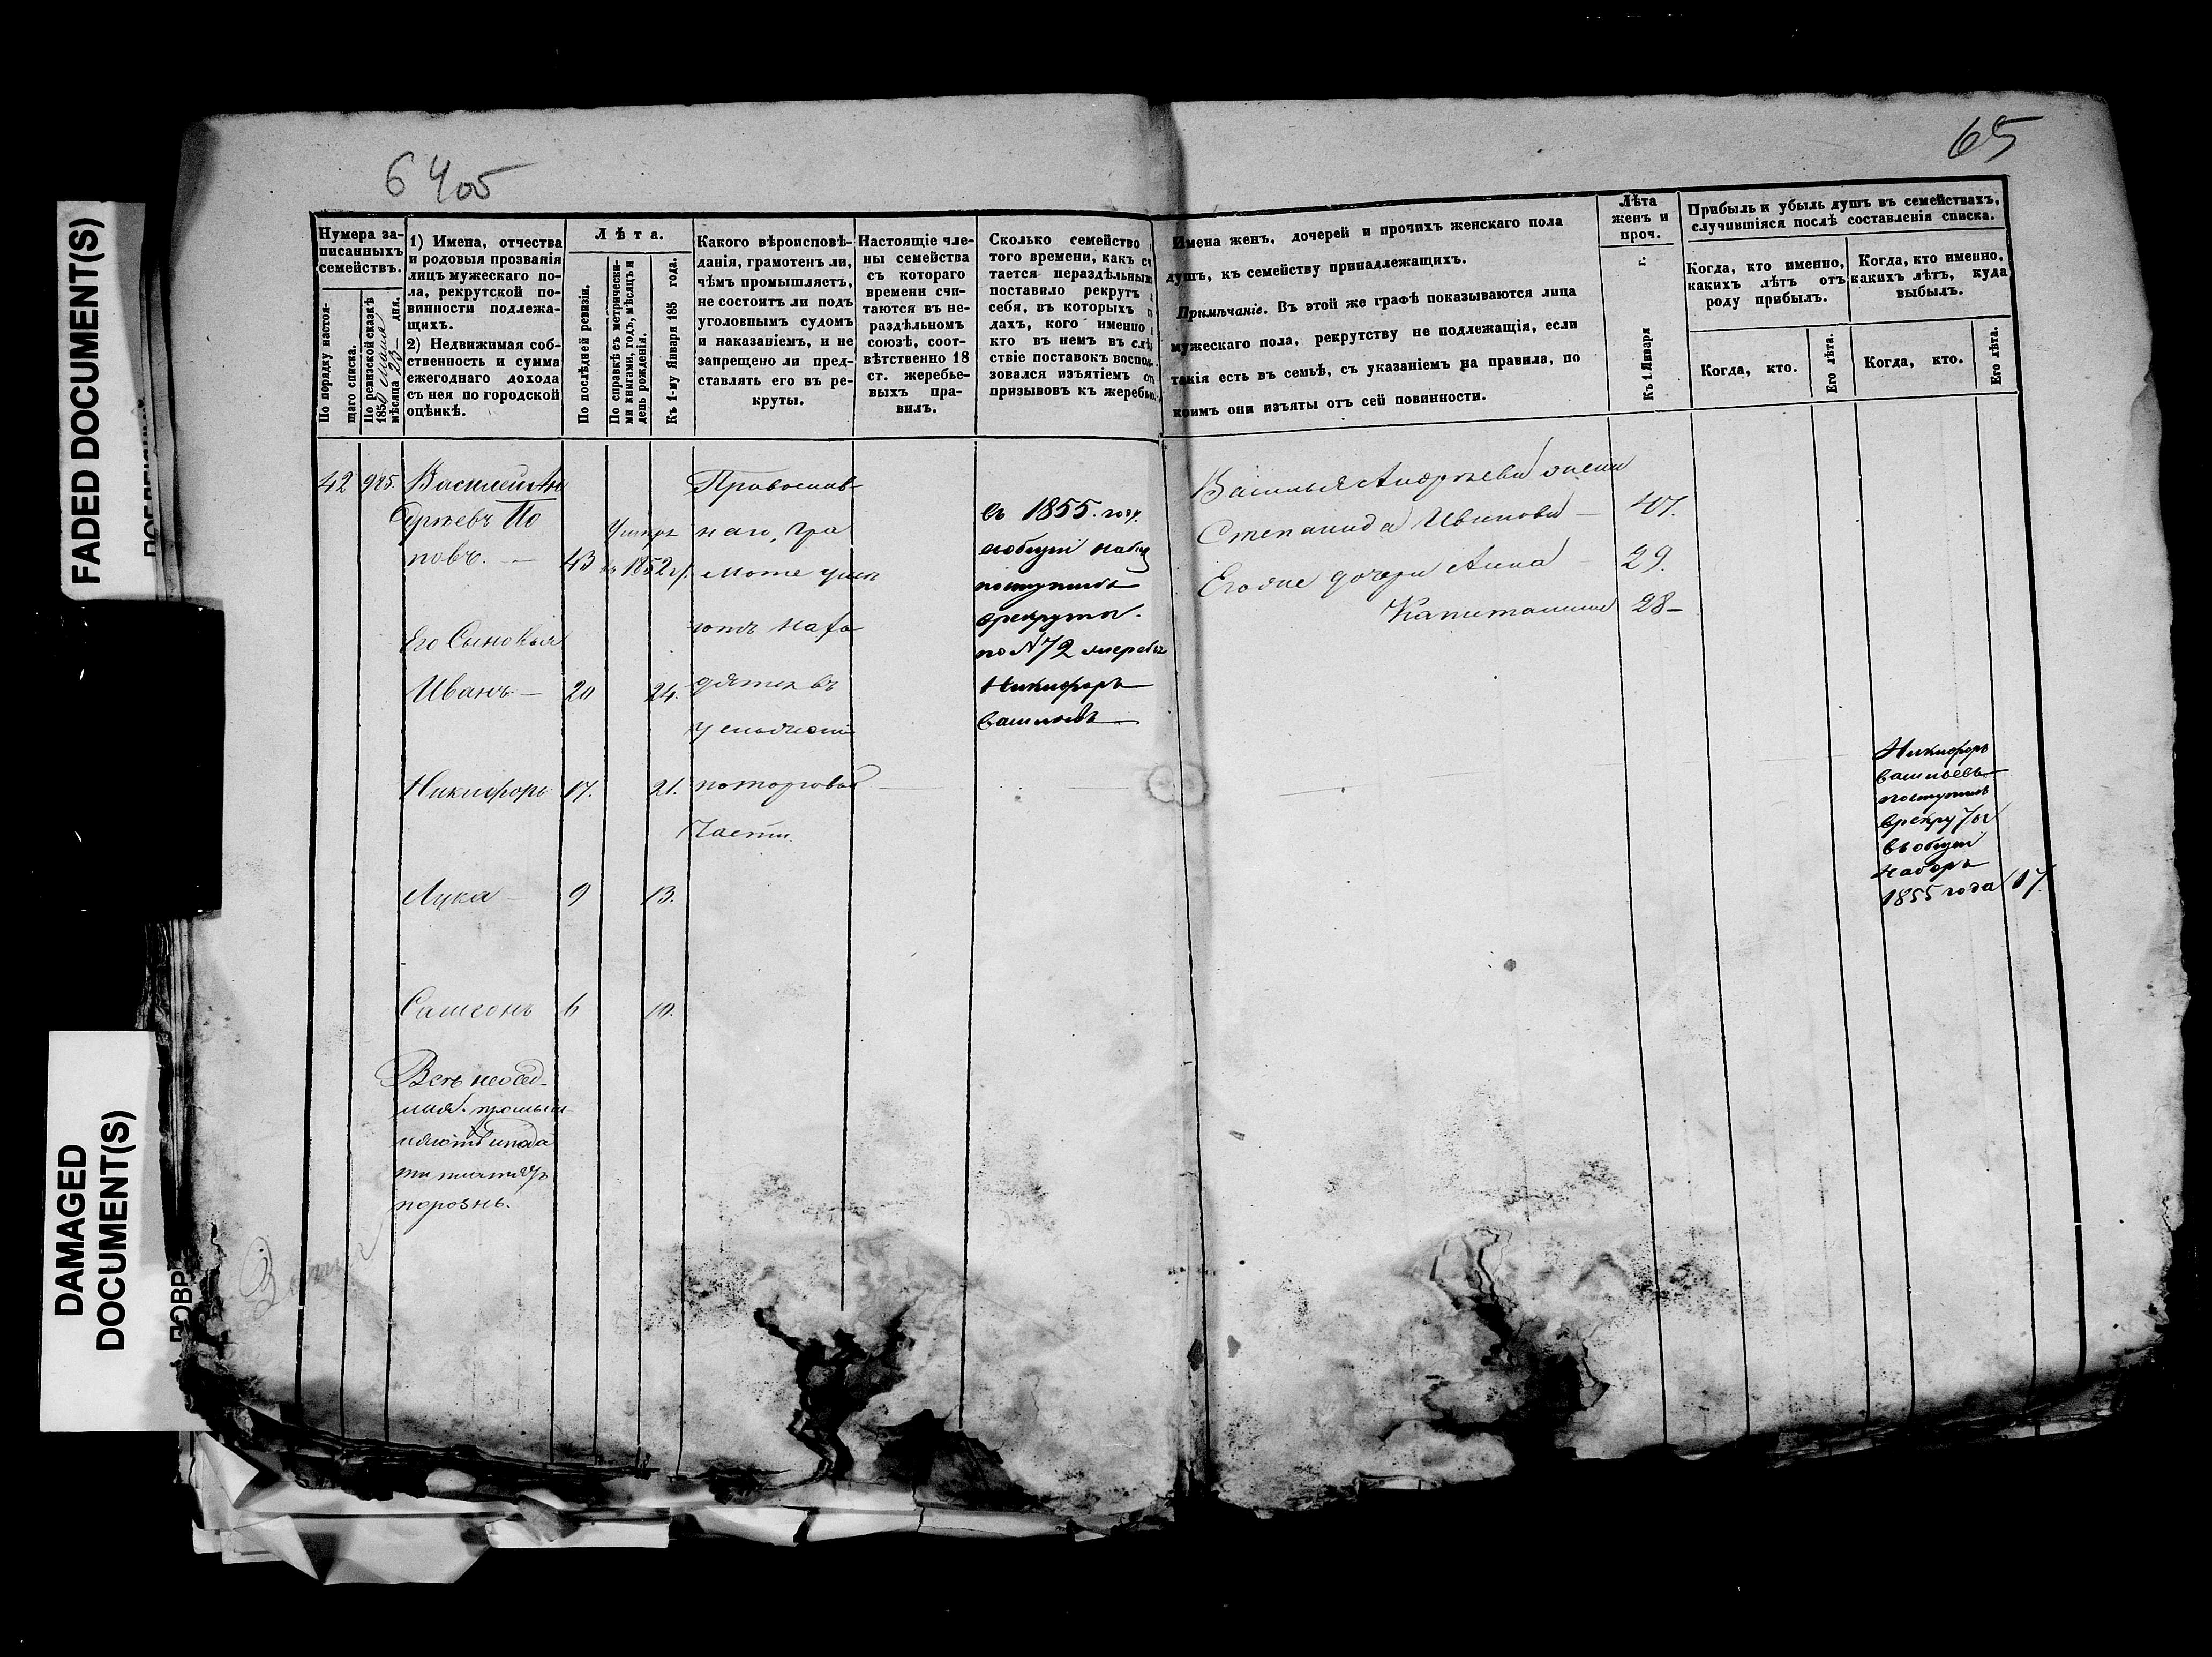 64об
65
FADED DOCUMENT(S)
DAMAGED
DOCUMENT(S)
Нумера за-
писанныхъ
семействъ.
По порядку настоя-
щаго списка.
По ревизской сказкѣ
1850
мѣсяца 23 дня.
1) Имена, отчества
и родовыя прозванія
лицъ мужескаго по-
ла, рекрутской по-
винности подлежа-
щихъ.
2) Недвижимая соб-
ственность и сумма
ежегоднаго дохода
съ нея по городской
оцѣнкѣ.
Лѣта.
По послѣдней ревизіи.
По справкѣ съ метрически-
ми книгами, годъ, мѣсяцъ и
день рожденія.
Къ 1-му Января 185 года.
Какого вѣроисповѣ-
данія, грамотенъ ли,
чѣмъ промышляетъ,
не состоитъ ли подъ
уголовнымъ судомъ
и наказаніемъ, и не
запрещено ли пред-
ставлять его въ ре-
круты.
Настоящіе чле-
ны семейства
съ котораго
времени счи-
таются въ не-
раздѣльномъ
союзѣ, соот-
вѣтственно 18
ст. жеребье-
выхъ пра-
вилъ.
Сколько семейство
того времени, какъ сч
тается нераздѣльным
поставило рекрутъ
себя, въ которыхъ г
дахъ, кого именно
кто въ немъ въ слѣ
ствіе поставокъ воспол
зовался изъятіемъ от
призывовъ къ жеребью.
Имена женъ, дочерей и прочихъ женскаго пола
душъ, къ семейству принадлежащихъ.
Примѣчаніе. Въ этой же графѣ показываются лица
мужескаго пола, рекрутству не подлежащія, если
такія есть въ семьѣ, съ указаніемъ на правила, по
коимъ они изъяты отъ сей повинности.
Лѣта
женъ и
проч.
Къ 1 Января г.
Прибыль и убыль душъ въ семействахъ,
случившіяся послѣ составленія списка.
Когда, кто именно,
какихъ лѣтъ отъ
роду прибылъ.
Когда, кто.
Его лѣта.
Когда, кто именно,
какихъ лѣтъ, куда
выбылъ.
Когда, кто.
Его лѣта.
42 925. Василей Ан
дреевъ По
повъ. — 43 умеръ
въ 1852 г.
Его Сыновья
Иванъ — 20 24.
Никифоръ 17. 21.
Лука — 9 13.
Самсонъ 6 10.
Всѣ неосед-
лыя. промыш
ляютъ и пода
ти платятъ
порознь.
Православ
наго, гра
моте
ютъ нахо
дятся въ
по торговой
части.
въ 1855 году
в общій набор
поступилъ
в рекруты
по № 72 жеребью
Никифоръ
Васильевъ
Василья Андреева жена
Степанида Иванова — 47.
Его же дочери Анна — 29.
Капитолина 28 —
Никифоръ
Васильевъ
поступилъ
в рекруты
въ общій
наборъ
1855 года 17.